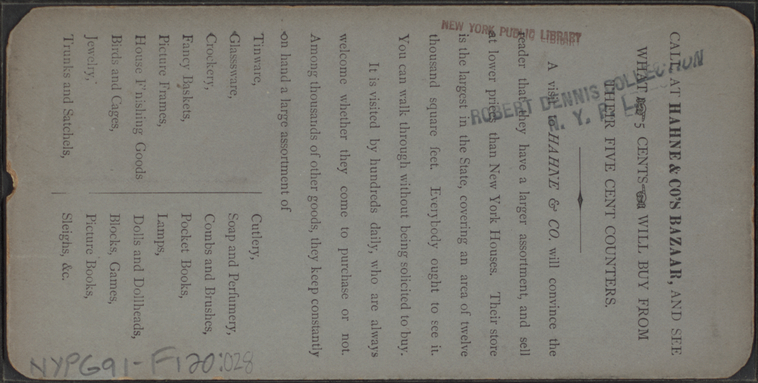 CALL AT HAHNE & CO'S BAZAAR, AND SEE
WHAT 5 CENTS WILL BUY FROM
THEIR FIVE CENT COUNTERS.
A visit to HAHNE & CO. will convince the
reader that they have a larger assortment, and sell
at lower prices than New York Houses. Their store
is the largest in the State, covering an area of twelve
thousand square feet. Everybody ought to see it.
You can walk through without being solicited to buy.
It is visited by hundreds daily, who are always
welcome whether they come to purchase or not.
Among thousands of other goods, they keep constantly
on hand a large assortment of
Tinware,
Glassware,
Crockery,
Fancy Baskets,
Picture Frames,
House Finishing Goods
Birds and Cages,
Jewelry,
Trunks and Satchels,
Cutlery,
Soap and Perfumery,
Combs and Brushes,
Pocket Books,
Lamps,
Dolls and Dollheads,
Blocks, Games,
Picture Books,
Sleighs, &c.
NEW YORK PUBLIC LIBRARY
ROBERT DENNIS COLLECTION
N. Y. P. L.
NYPG91-F120:028